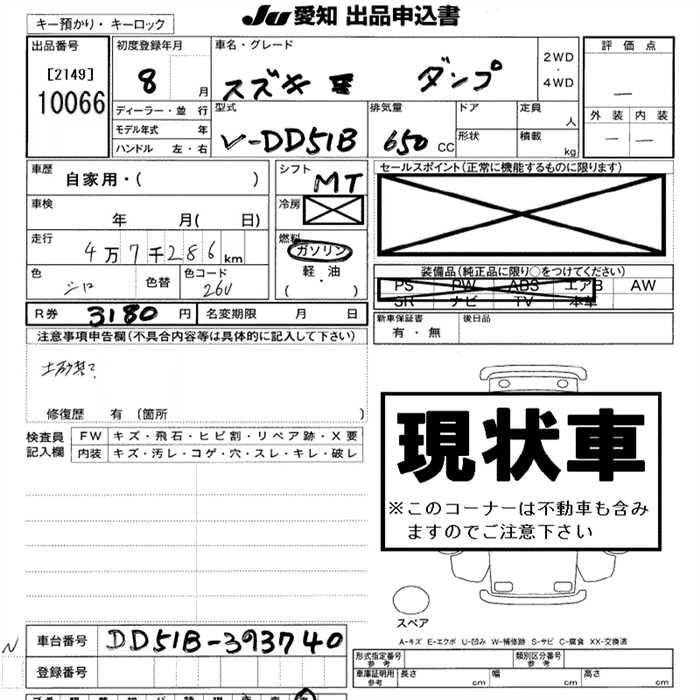 キー預かり・キーロック
JU 愛知 出品申込書
出品番号
[2149]
10066
初度登録年月
8 月
車名・グレード
スズキ ダンプ
2WD
・
4WD
評価点
—
外装 内装
— —
ディーラー・並 行
モデル年式 年
ハンドル 左・右
型式
V-DD51B
排気量
650 CC
ドア
形状
定員
人
積載
kg
車歴
自家用・( )
シフト
MT
セールスポイント(正常に機能するものに限ります)
車検
年 月( 日)
冷房
走行
4万7千286km
燃料
ガソリン
軽・油
( )
色
シロ
色替
色コード
26U
装備品(純正品に限り○をつけてください)
PS PW ABS エアB AW
SR ナビ TV 本革
R券 3180 円 名変期限 月 日
新車保証書
有・無
後日品
注意事項申告欄(不具合内容等は具体的に記入して下さい)
修復歴 有 (箇所 )
検査員
記入欄
FW キズ・飛石・ヒビ割・リペア跡・X要
内装 キズ・汚レ・コゲ・穴・スレ・キレ・破レ
現状車
※このコーナーは不動車も含み
ますのでご注意下さい
スペア
A-キズ E-エクボ U-凹み W-補修跡 S-サビ C-腐食 XX-交換済
N
車台番号 DD51B-393740
登録番号
形式指定番号
参考
類別区分番号
参考
車庫証明用
参考
長さ cm 幅 cm 高さ cm